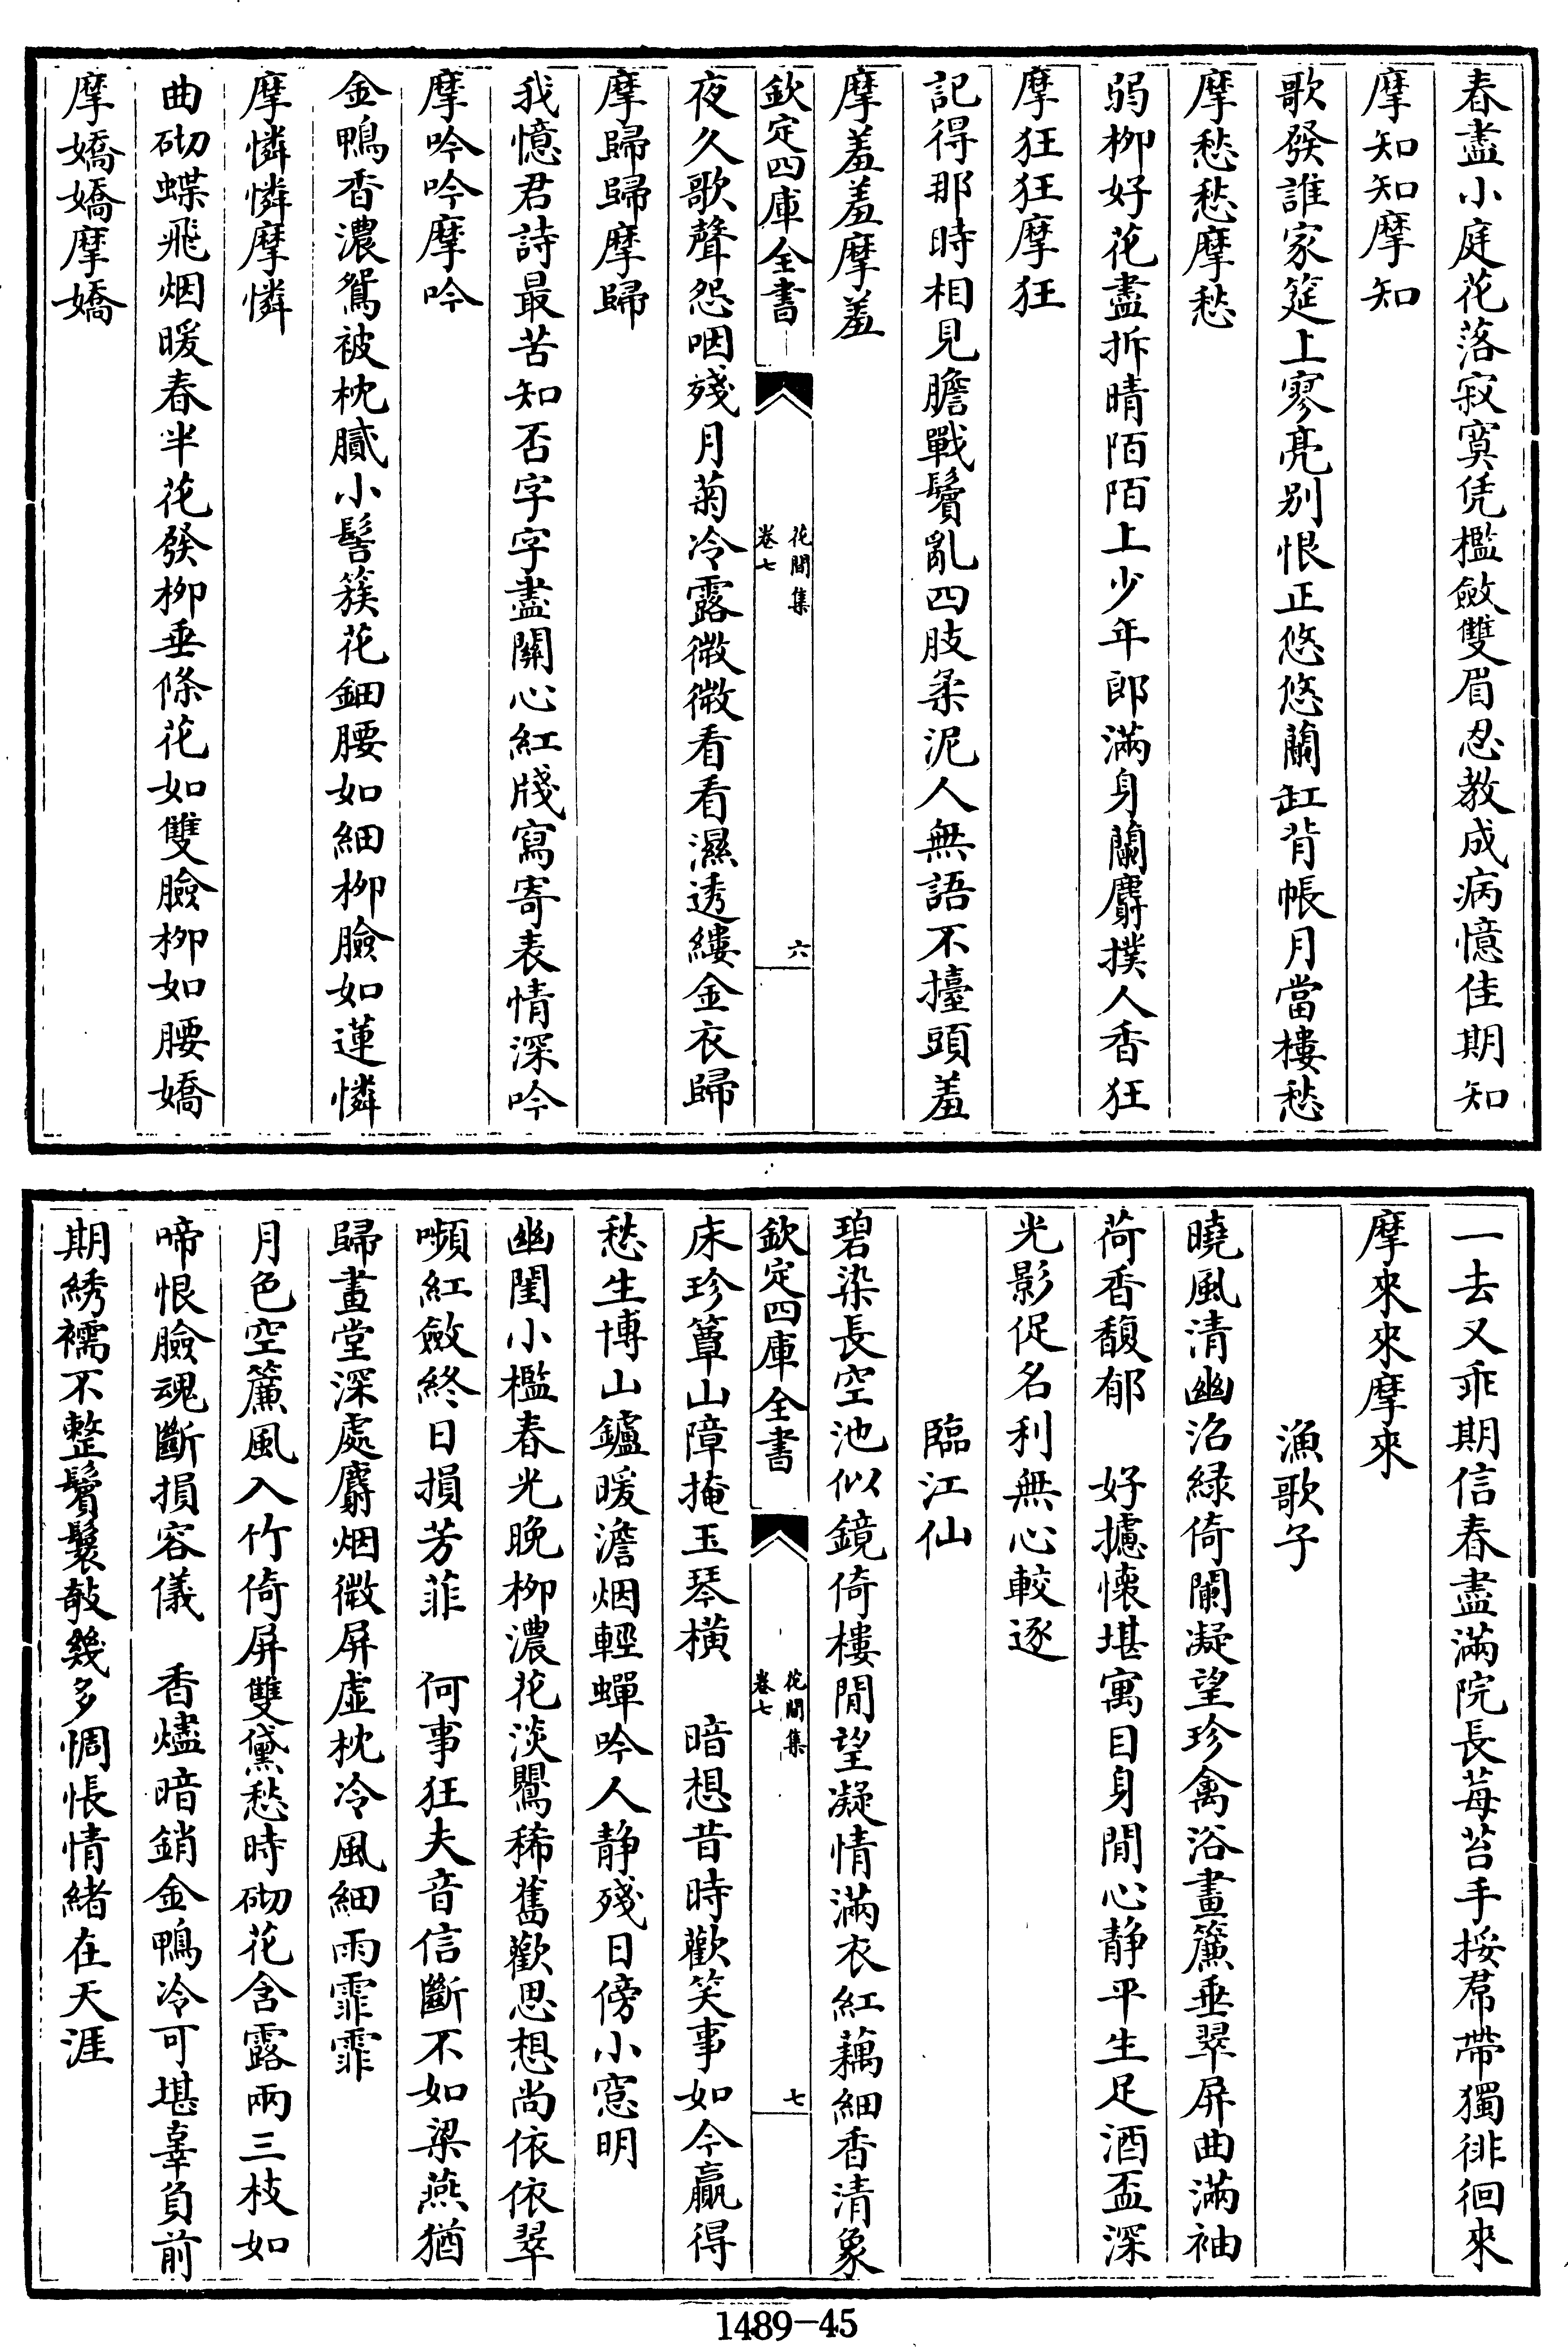 春盡小庭花落寂寞凭檻斂雙眉忍教成病憶佳期知
摩知知摩知
歌發誰家筵上寥亮别恨正悠悠蘭缸背帳月當樓愁
摩愁愁摩愁
弱柳好花盡拆晴陌陌上少年郎滿身蘭麝撲人香狂
摩狂狂摩狂
記得那時相見膽戰鬢亂四肢柔泥人無語不擡頭羞
摩羞羞摩羞
欽定四庫全書
花間集
卷七
六
夜久歌聲怨咽殘月菊冷露微微看看濕透縷金衣歸
摩歸歸摩歸
我憶君詩最苦知否字字盡關心紅牋寫寄表情深吟
摩吟吟摩吟
金鴨香濃鴛被枕膩小髻簇花鈿腰如細柳臉如蓮憐
摩憐憐摩憐
曲砌蝶飛烟暖春半花發柳垂條花如雙臉柳如腰嬌
摩嬌嬌摩嬌
一去又乖期信春盡滿院長莓苔手挼帬帶獨徘徊來
摩來來摩來
漁歌子
曉風清幽沼緑倚闌凝望珍禽浴畫簾垂翠屏曲滿袖
荷香馥郁　好攄懷堪寓目身閒心静平生足酒盃深
光影促名利無心較逐
臨江仙
碧染長空池似鏡倚樓閒望凝情滿衣紅藕細香清象
欽定四庫全書
花間集
卷七
七
床珍簟山障掩玉琴橫　暗想昔時歡笑事如今贏得
愁生博山鑪暖澹烟輕蟬吟人静殘日傍小窓明
幽閨小檻春光晚柳濃花淡鸎稀舊歡思想尚依依翠
嚬紅斂終日損芳菲　何事狂夫音信斷不如梁燕猶
歸畫堂深處麝烟微屏虚枕冷風細雨霏霏
月色空簾風入竹倚屏雙黛愁時砌花含露兩三枝如
啼恨臉魂斷損容儀　香燼暗銷金鴨冷可堪辜負前
期綉襦不整鬢鬟欹幾多惆悵情緒在天涯
1489-45